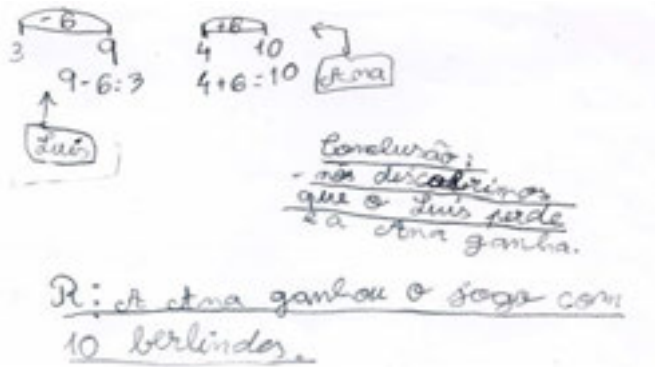 - 6
3 9
9 - 6 = 3
Luís
+6
4 10
4 + 6 = 10
Ana
Conclusão:
- nós descobrimos
que o Luís perde
e a Ana ganha.
R: A Ana ganhou o jogo com
10 berlindes.